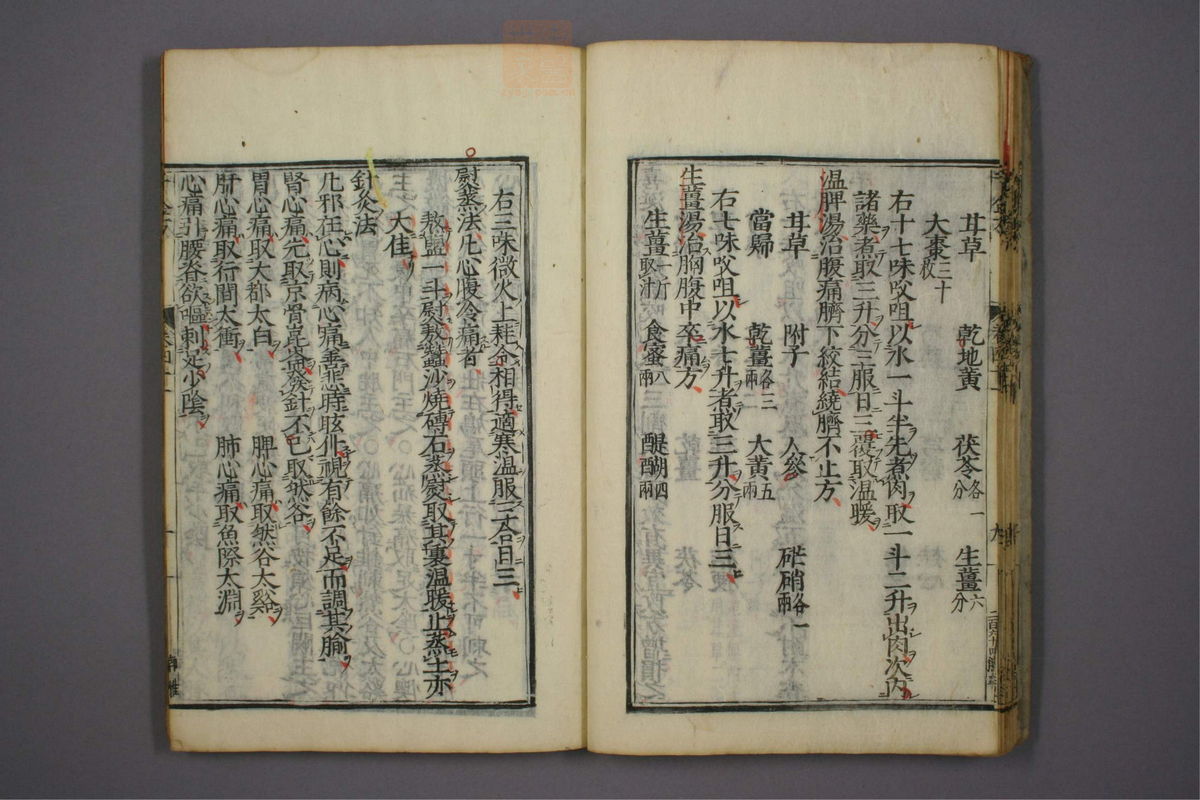 甘草　乾地黄　茯苓各一分　生薑六分
大棗三十枚
右十七味㕮咀以水一斗半先煮肉取一斗二升出肉次内
諸藥煮取三升分三服日三覆取温暖
温脾湯治腹痛臍下絞結繞臍不止方
甘草　附子　人參　芒硝各一兩
當歸　乾薑各三兩　大黄五兩
右七味㕮咀以水七升煮取三升分服日三
生薑湯治胸腹中卒痛方
生薑一斤取汁　食蜜八兩　醍醐四兩
右三味微火上耗令相得適寒温服三合日三
熨蒸法凡心腹冷痛者
熬鹽一斗熨熬蠶沙燒磚石蒸熨取其裏温暖止蒸土亦
大佳
針灸法
凡邪在心則病心痛善悲時眩仆視有餘不足而調其腧
腎心痛先取京骨崑崙發針不已取然谷
胃心痛取大都太白　脾心痛取然谷太谿
肝心痛取行間太衝　肺心痛取魚際太淵
心痛引腰脊欲嘔刺足少陰